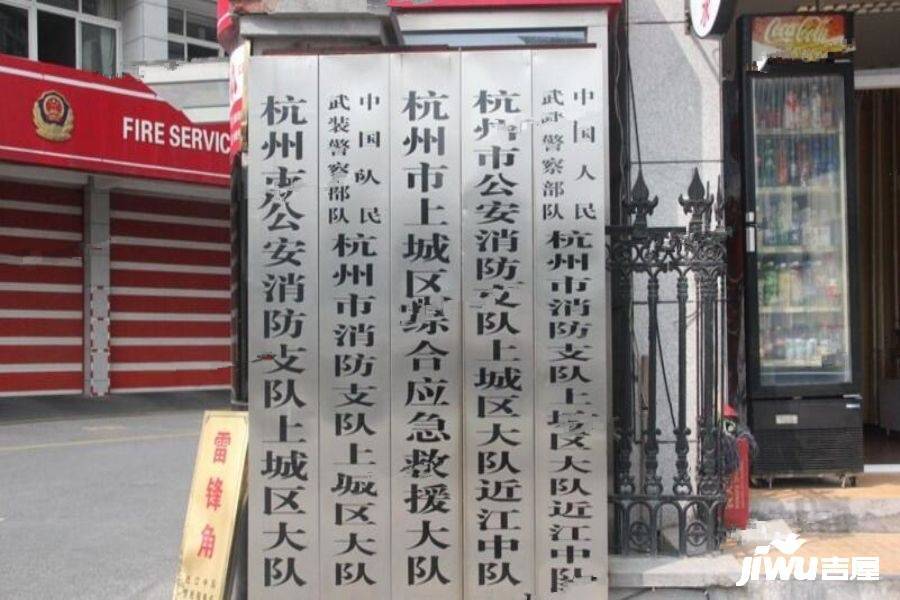 FIRE SERVIC
杭州市公安消防支队上城区大队
中国人民
武装警察部队
杭州市消防支队上城区大队
杭州市上城区综合应急救援大队
杭州市公安消防支队上城区大队近江中队
中国人民
武装警察部队
杭州市消防支队上城区大队近江中队
雷锋角
Coca-Cola
jiwu吉屋